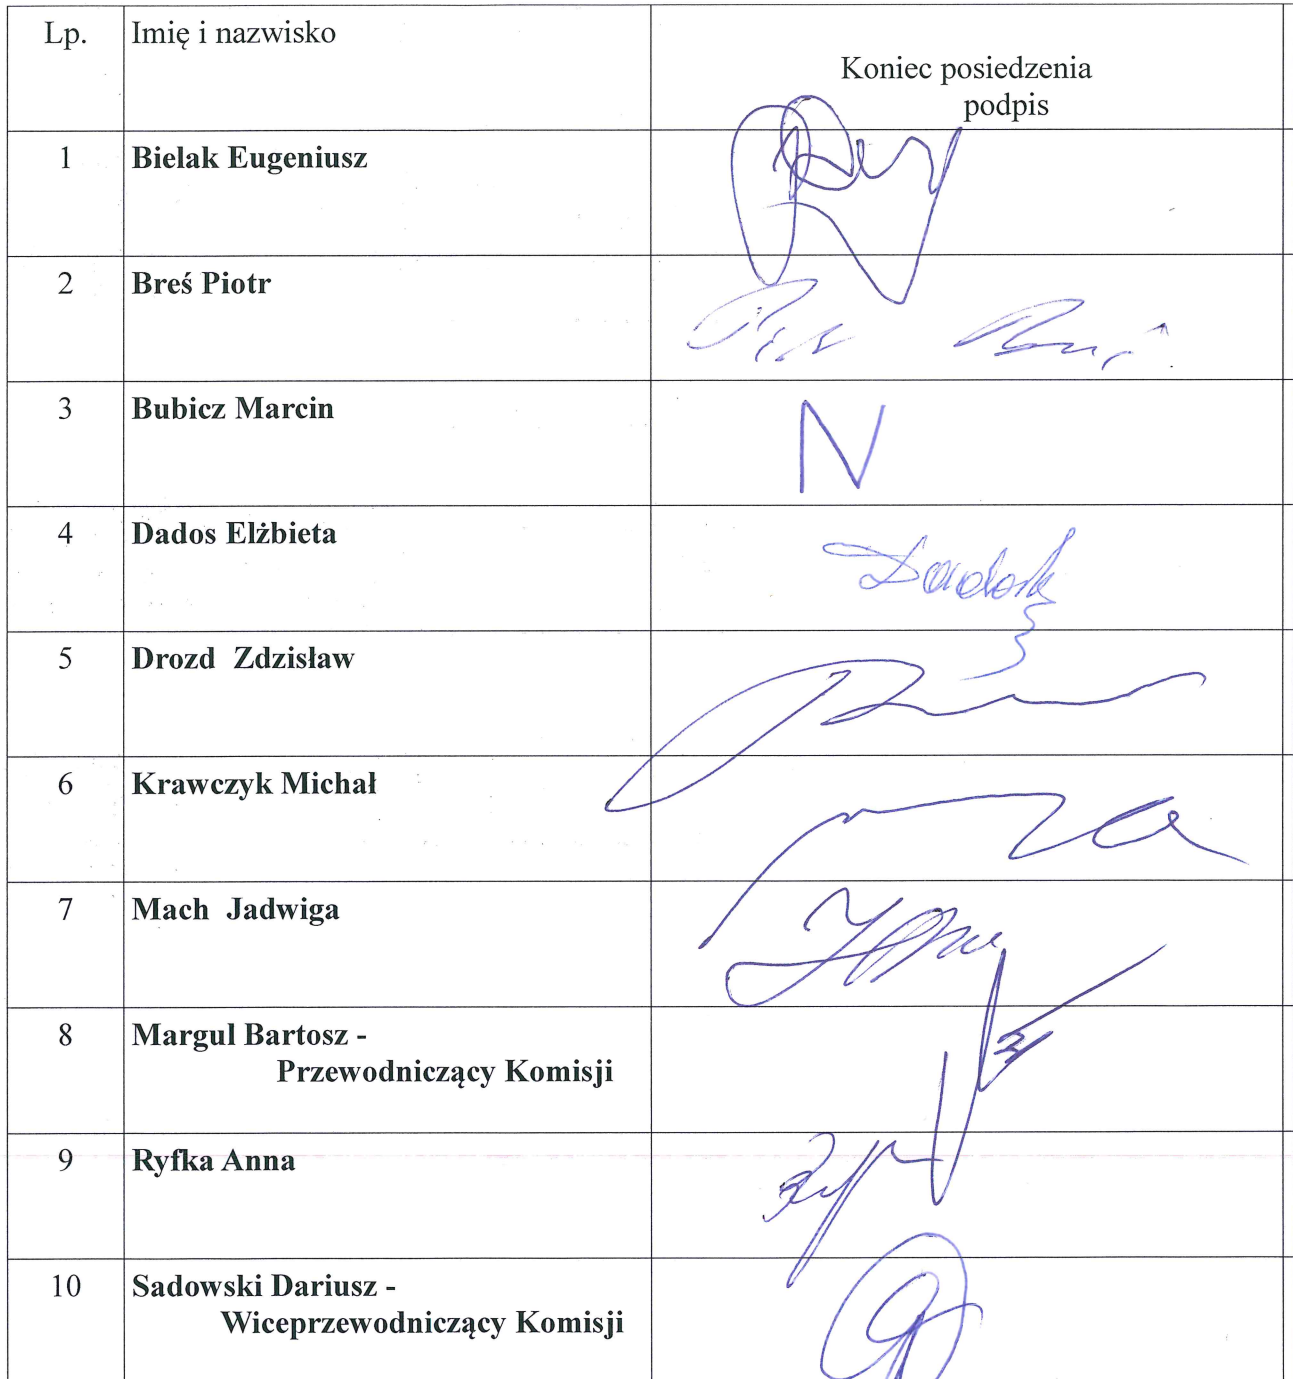 Lp. Imię i nazwisko
Koniec posiedzenia
podpis
1 Bielak Eugeniusz
2 Breś Piotr
3 Bubicz Marcin N
4 Dados Elżbieta
5 Drozd Zdzisław
6 Krawczyk Michał
7 Mach Jadwiga
8 Margul Bartosz -
Przewodniczący Komisji
9 Ryfka Anna
10 Sadowski Dariusz -
Wiceprzewodniczący Komisji